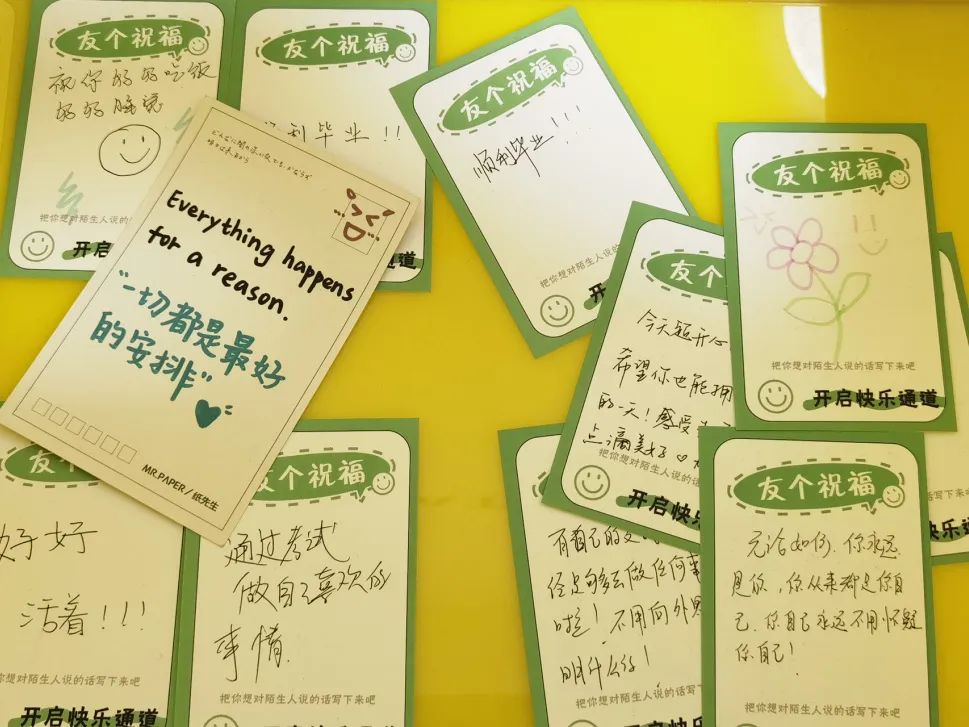 友个祝福
祝你好好吃饭
好好睡觉
把你想对陌生人说的
开启
友个祝福
利毕业!!
道
友个祝福
顺利毕业!!!
把你想对陌生人说的
开
Everything happens
for a reason.
"一切都是最好
的安排"
MR.PAPER/纸先生
友个祝福
把你想对陌生人说的话写下来吧
开启快乐通道
友个
今天超开心
希望你也能拥
的一天!感受
点滴美好
把你想对陌生人说的话
开启快乐
友
好好
活着!!!
把你想对陌生人说的话写下来吧
开启快乐通道
友个祝福
通过考试
做自己喜欢的
事情.
把你想对陌生人说的话写下来吧
有自己的
经足够去做任何事
啦!不用向外界
明什么的!
把你想对陌生人说的话写下来吧
友个祝福
无论如何,你永远
是你,你从来都是你自
己.你自己永远不用怀疑
你自己!
把你想对陌生人说的话写下来吧
话写下来吧
道